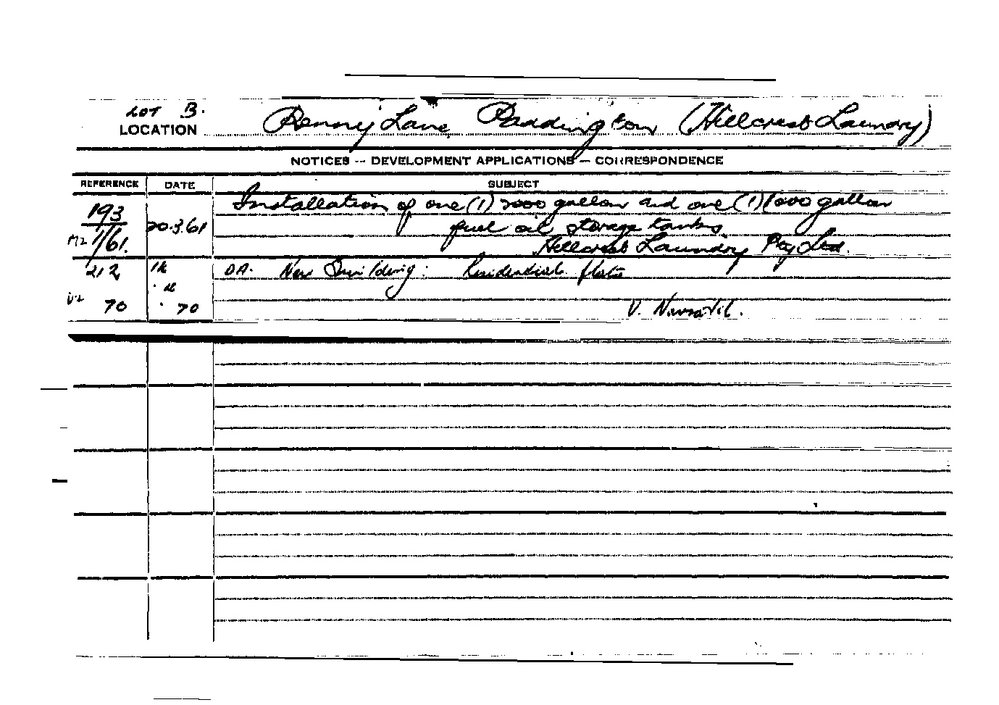 LOT B.
LOCATION Renny Lane Paddington (Hillcrest Laundry)
NOTICES -- DEVELOPMENT APPLICATIONS — CORRESPONDENCE
REFERENCE DATE SUBJECT
193 Installation of one (1) 2000 gallon and one (1) 1000 gallon
1/61. 20.3.61 fuel oil storage tanks
Hillcrest Laundry Pty Ltd.
212 DA. New Building: Residential flats
70 70 V.